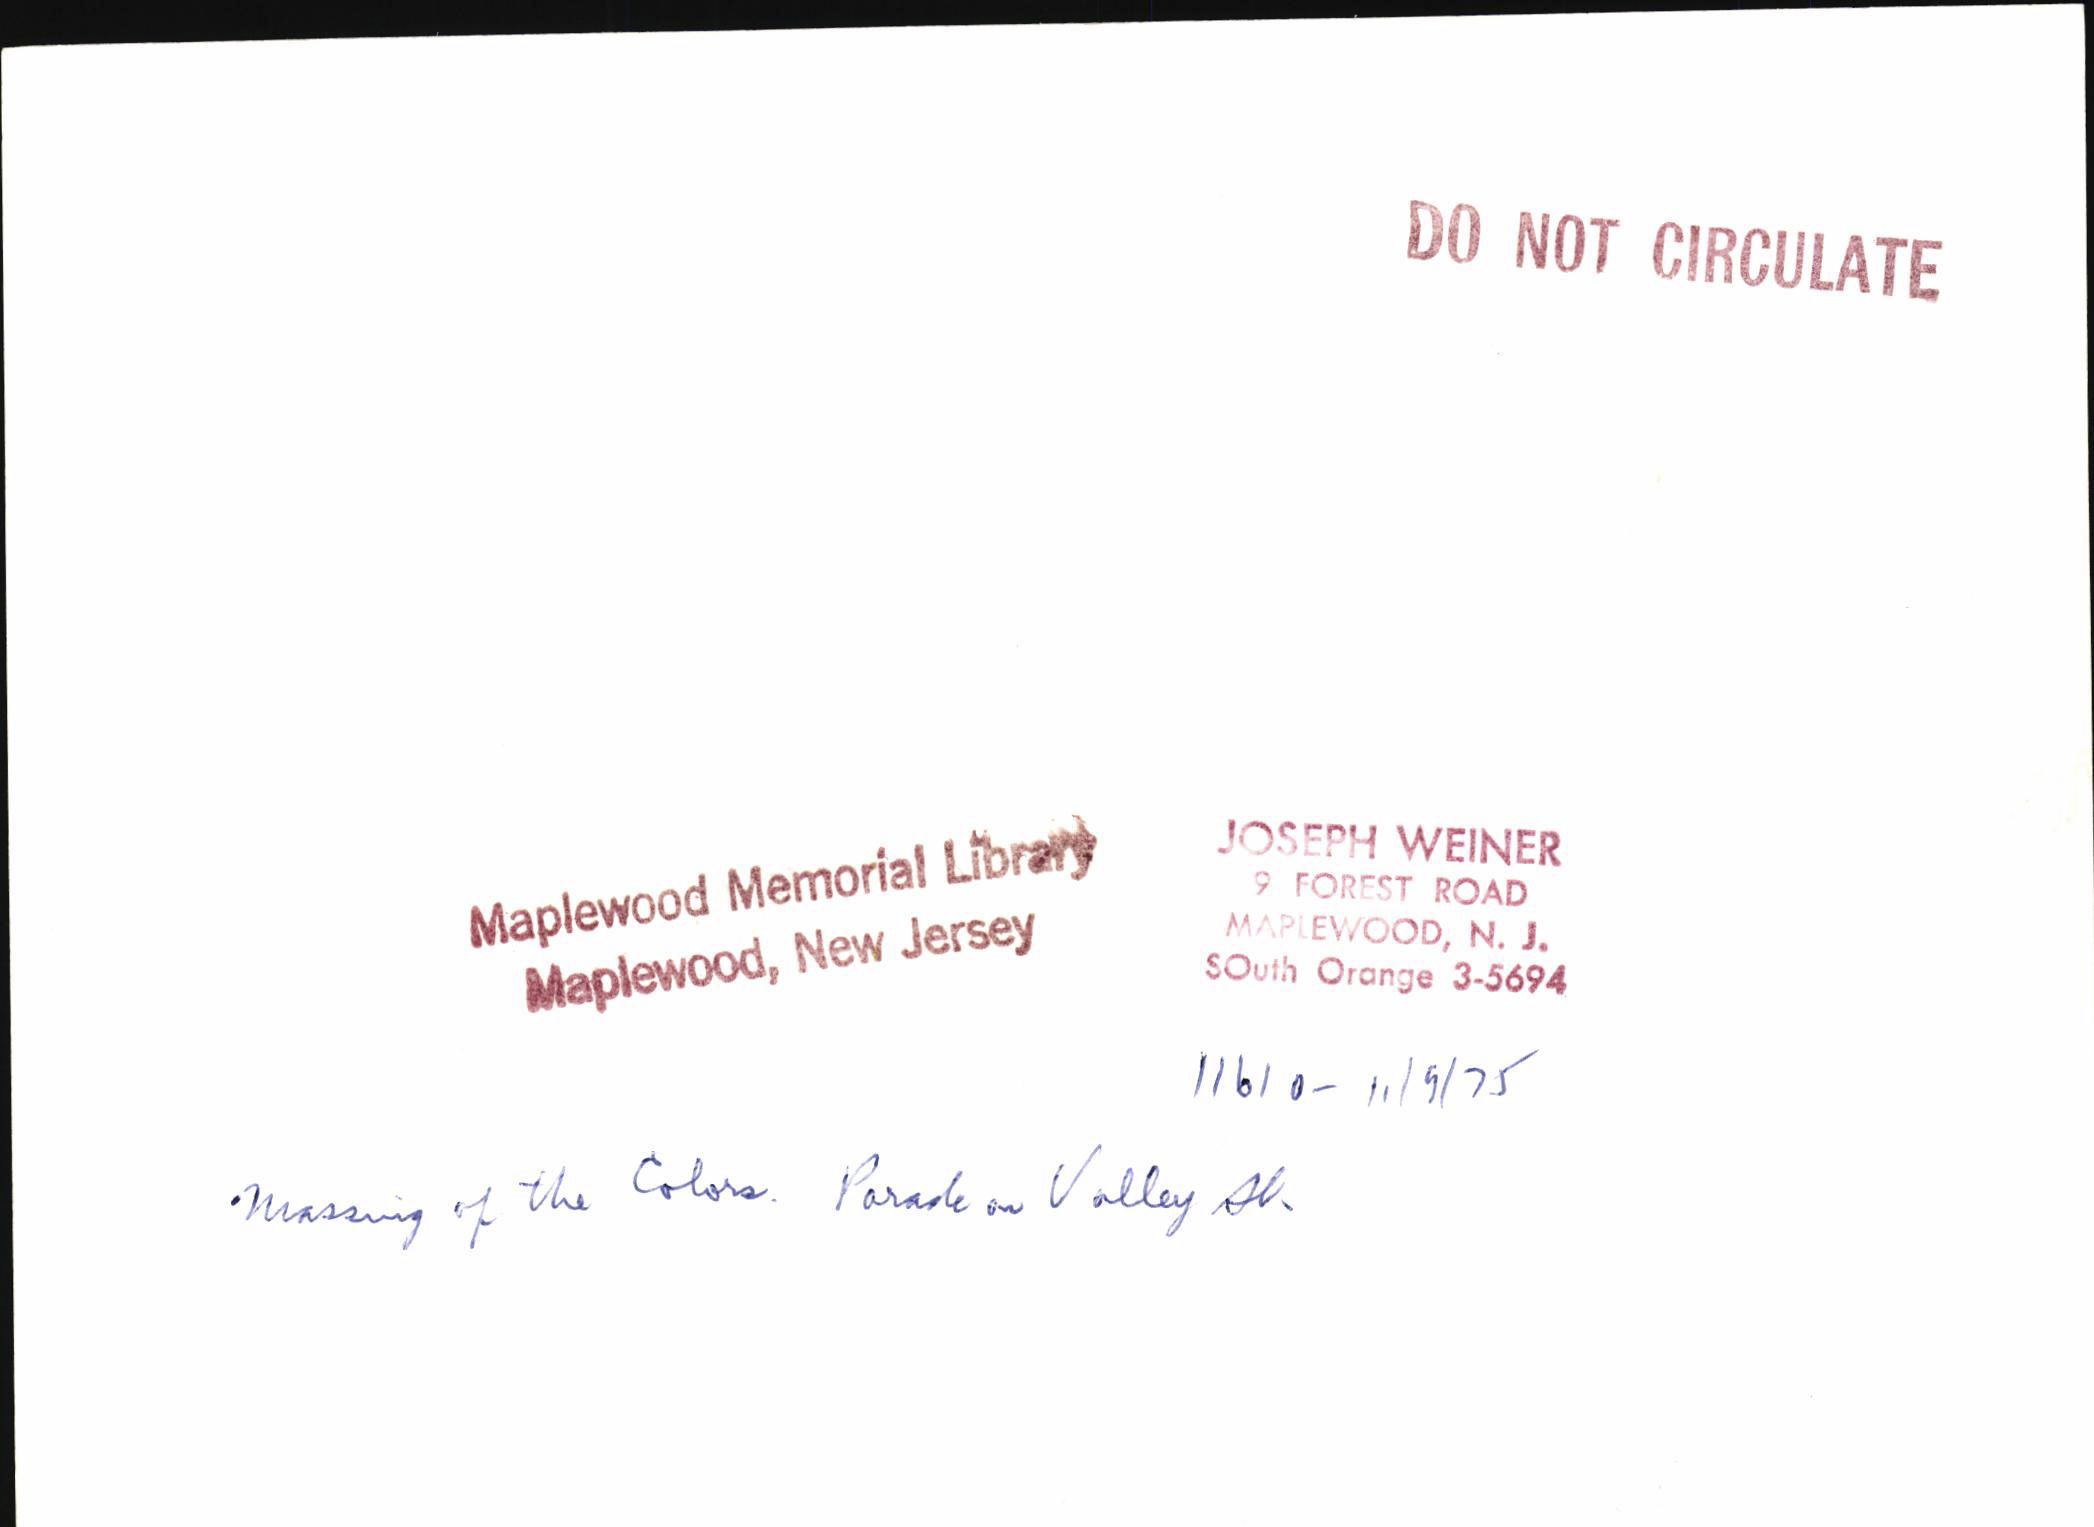 DO NOT CIRCULATE
Maplewood Memorial Library
Maplewood, New Jersey
JOSEPH WEINER
9 FOREST ROAD
MAPLEWOOD, N. J.
SOuth Orange 3-5694
11610- 11/9/75
Massing of the Colors. Parade on Valley St.